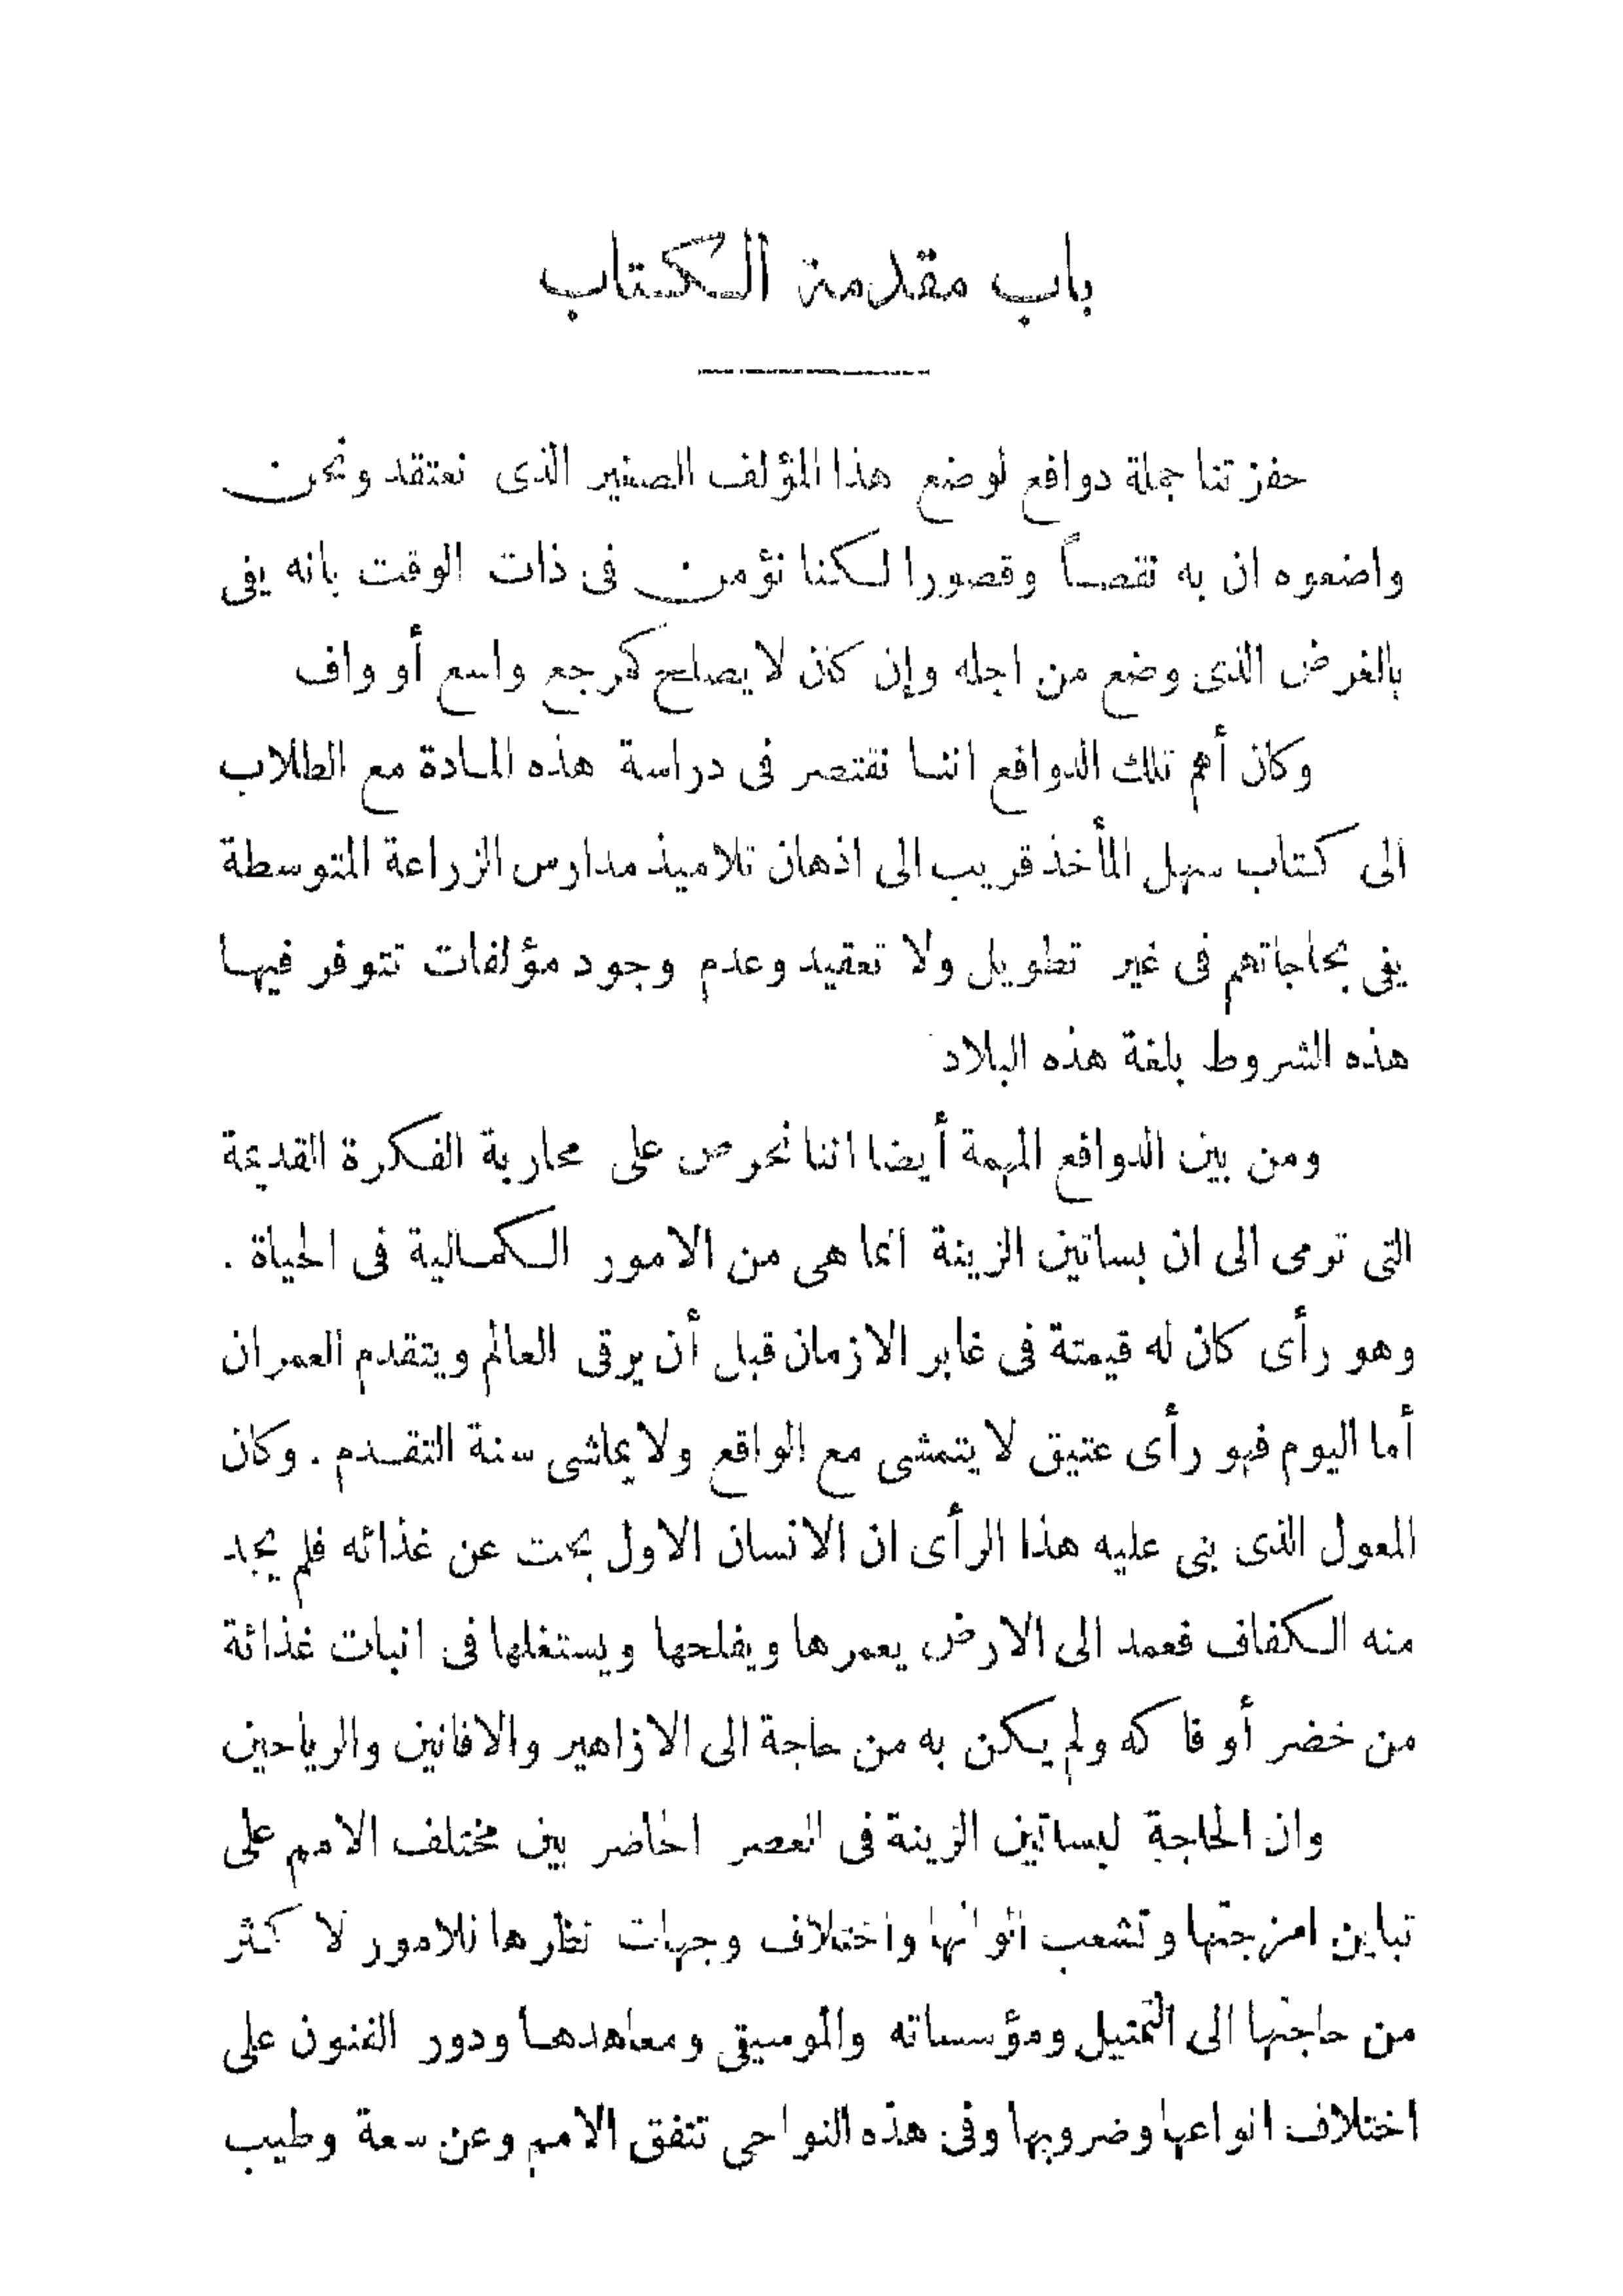 باب مقدمة الكتاب
حفزتنا جملة دوافع لوضع هذا المؤلف الصغير الذى نعتقد ونحن
واضعوه ان به نقصاً وقصورا لكنا نؤمن فى ذات الوقت بانه يفى
بالغرض الذى وضع من اجله وإن كان لا يصلح كمرجع واسع أو واف
وكان أهم تلك الدوافع اننا نقتصر فى دراسة هذه المادة مع الطلاب
الى كتاب سهل المأخذ قريب الى اذهان تلاميذ مدارس الزراعة المتوسطة
يفى بحاجاتهم فى غير تطويل ولا تعقيد وعدم وجود مؤلفات تتوفر فيها
هذه الشروط بلغة هذه البلاد
ومن بين الدوافع المهمة أيضا اننا نحرص على محاربة الفكرة القديمة
التى تومى الى ان بساتين الزينة انما هى من الامور الكمالية فى الحياة .
وهو رأى كان له قيمتة فى غابر الازمان قبل أن يرقى العالم ويتقدم العمران
أما اليوم فهو رأى عتيق لا يتمشى مع الواقع ولا يماشى سنة التقدم . وكان
المعول الذى بنى عليه هذا الرأى ان الانسان الاول بحث عن غذائه فلم يجد
منه الكفاف فعمد الى الارض يعمرها ويفلحها ويستغلها فى انبات غذائة
من خضر أو فاكه ولم يكن به من حاجة الى الازاهير والافانين والرياحين
وان الحاجة لبساتين الزينة فى العصر الحاضر بين مختلف الامم على
تباين امزجتها وتشعب الوانها واختلاف وجهات نظرها للامور لا كثر
من حاجتها الى التمثيل ومؤسساته والموسيقى ومعاهدها ودور الفنون على
اختلاف انواعها وضروبها وفى هذه النواحى تتفق الامم وعن سعة وطيب